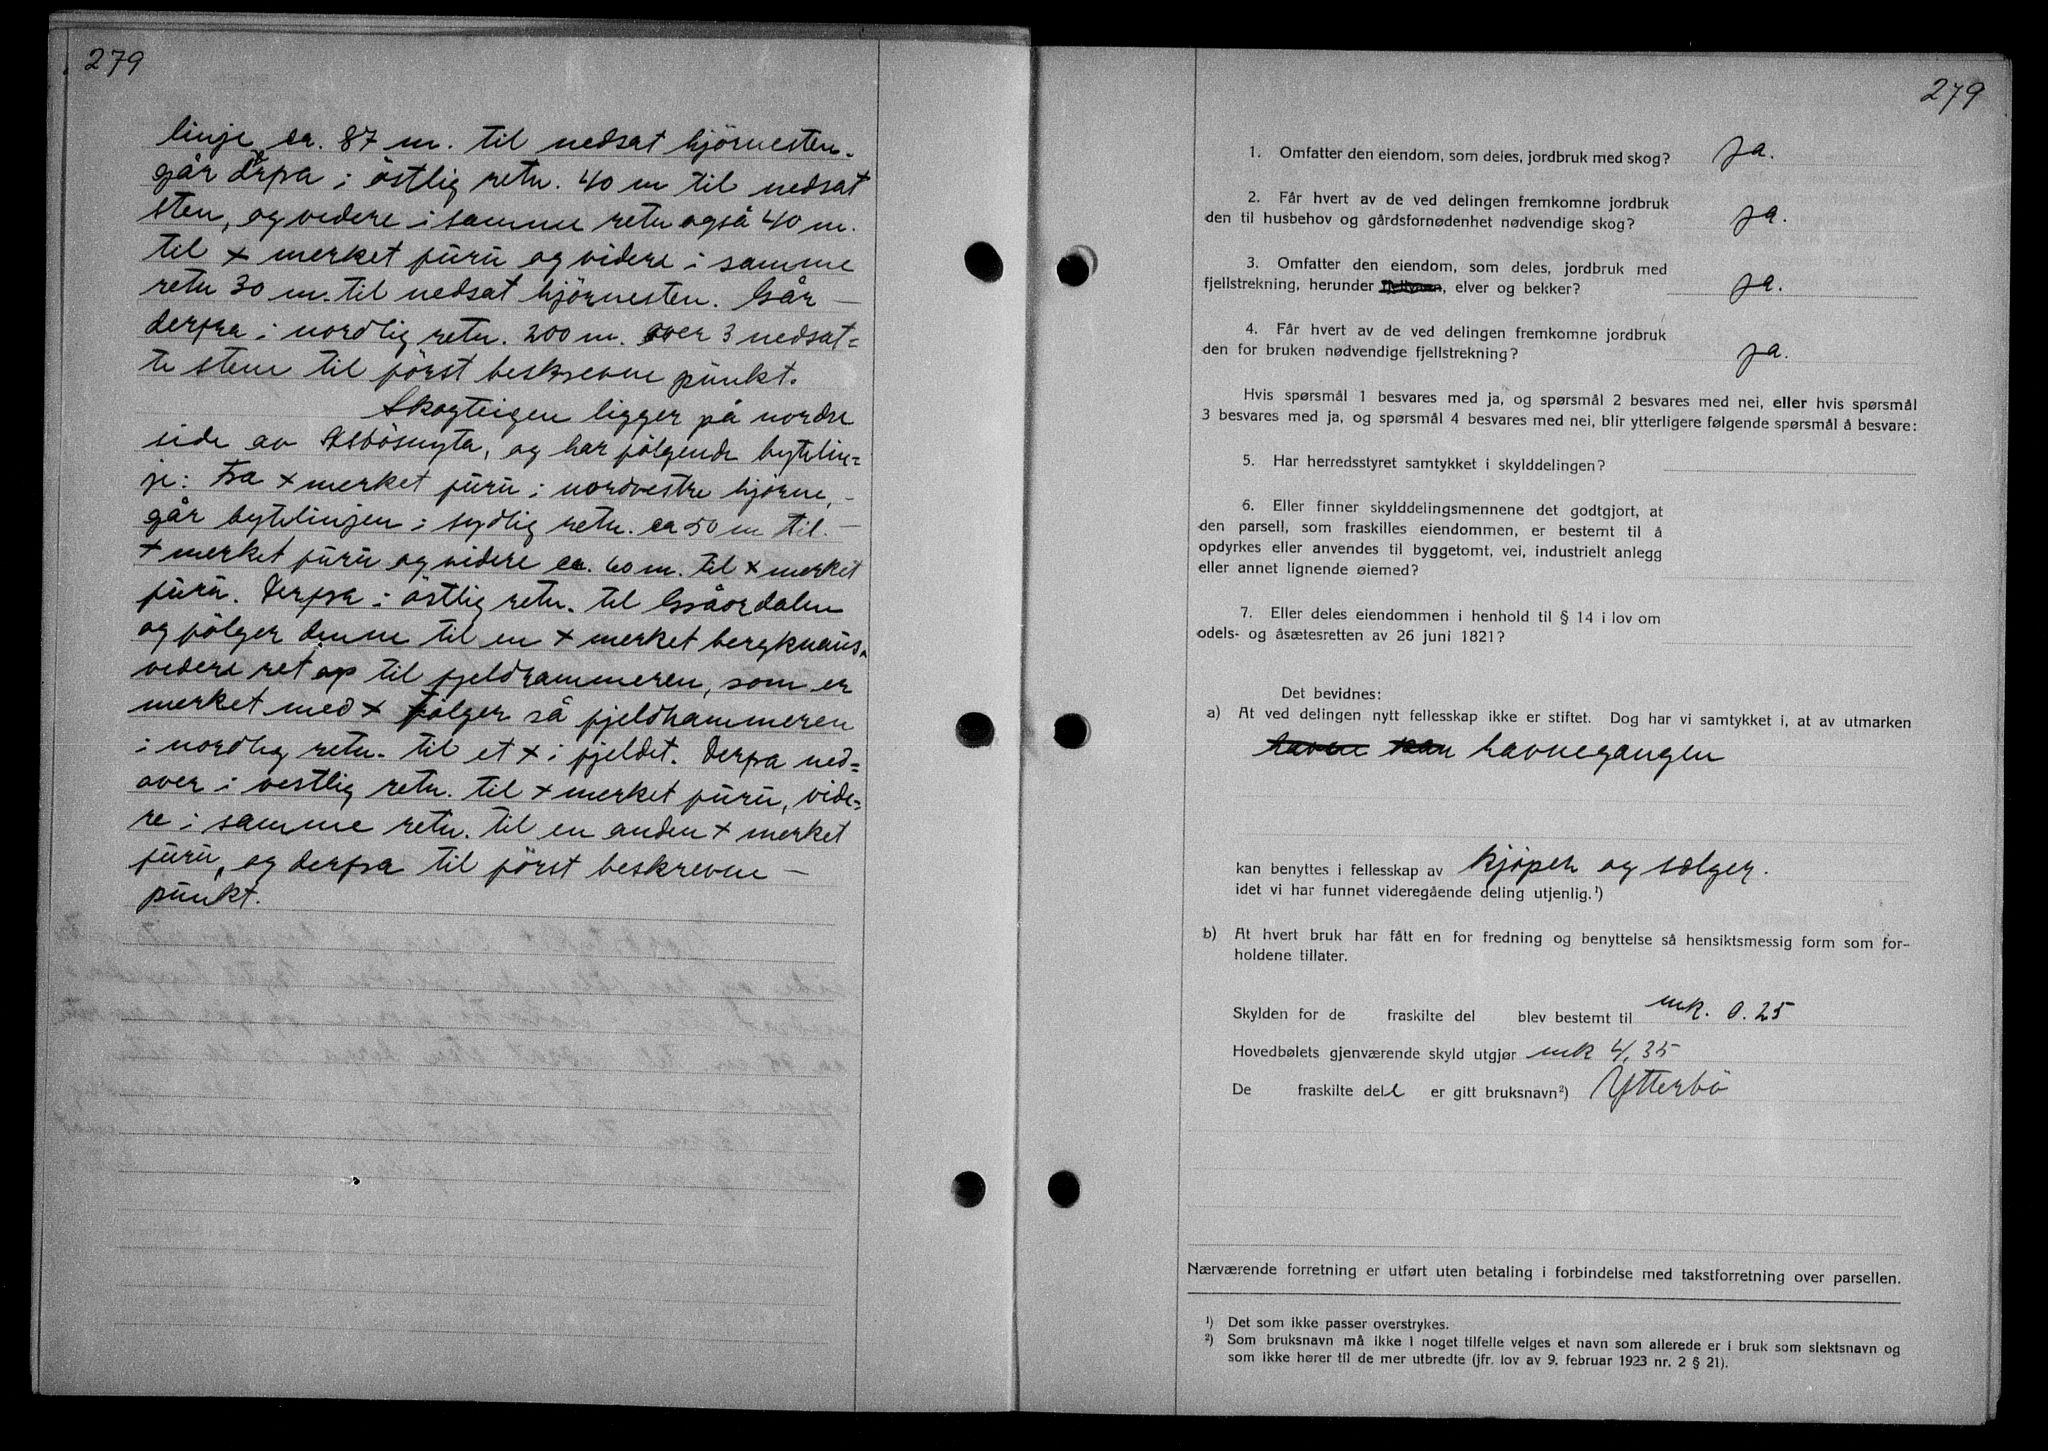 279
linje ca. 87 m. til nedsat hjörnesten.
går derfra i östlig retn. 40 m til nedsat
sten, og videre i samme retn også 40 m.
til + merket furu og videre i samme
retn 30 m. til nedsat hjörnesten. Går —
derfra i nordlig retn. 200 m. over 3 nedsat=
te stene til först beskrevne punkt.
Skogteigen ligger på nordre
side av og har fölgende bytelin=
je: Fra + merket furu i nordvestre hjörne, —
går bytelinjen i sydlig retn. ca 50 m til —
+ merket furu og videre ca. 60 m. til + merket
furu. Derfra i östlig retn. til
og fölger denne til en + merket bergknaus.
videre ret op til fjeldhammeren, som er
merket med + fölger så fjeldhammeren
i nordlig retn. til et + i fjeldet. Derfra ned=
over i vestlig retn. til + merket furu, vide=
re i samme retn. til en anden + merket
furu, og derfra til först beskrevne —
punkt.
279
1. Omfatter den eiendom, som deles, jordbruk med skog? ja.
2. Får hvert av de ved delingen fremkomne jordbruk
den til husbehov og gårdsfornødenhet nødvendige skog? ja.
3. Omfatter den eiendom, som deles, jordbruk med
fjellstrekning, herunder fjellvann, elver og bekker? ja.
4. Får hvert av de ved delingen fremkomne jordbruk
den for bruken nødvendige fjellstrekning? ja.
Hvis spørsmål 1 besvares med ja, og spørsmål 2 besvares med nei, eller hvis spørsmål
3 besvares med ja, og spørsmål 4 besvares med nei, blir ytterligere følgende spørsmål å besvare:
5. Har herredsstyret samtykket i skylddelingen?
6. Eller finner skylddelingsmennene det godtgjort, at
den parsell, som fraskilles eiendommen, er bestemt til å
opdyrkes eller anvendes til byggetomt, vei, industrielt anlegg
eller annet lignende øiemed?
7. Eller deles eiendommen i henhold til § 14 i lov om
odels- og åsætesretten av 26 juni 1821?
Det bevidnes:
a) At ved delingen nytt fellesskap ikke er stiftet. Dog har vi samtykket i, at av utmarken
havne kan havnegangen
kan benyttes i fellesskap av kjöper og sælger.
idet vi har funnet videregående deling utjenlig.¹)
b) At hvert bruk har fått en for fredning og benyttelse så hensiktsmessig form som for-
holdene tillater.
Skylden for de fraskilte del blev bestemt til mk. 0.25
Hovedbølets gjenværende skyld utgjør mk 4,35
De fraskilte del er gitt bruksnavn²) Ytterbö
Nærværende forretning er utført uten betaling i forbindelse med takstforretning over parsellen.
¹) Det som ikke passer overstrykes.
²) Som bruksnavn må ikke i noget tilfelle velges et navn som allerede er i bruk som slektsnavn og
som ikke hører til de mer utbredte (jfr. lov av 9. februar 1923 nr. 2 § 21).